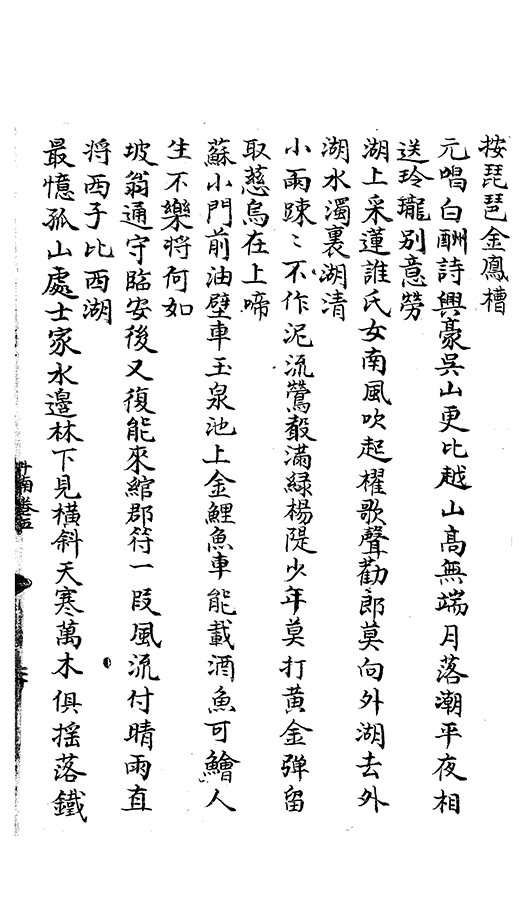 按琵琶金鳳槽
元唱白酬詩興豪吳山更比越山高無端月落潮平夜相
送玲瓏别意勞
湖上采蓮誰氏女南風吹起櫂歌聲勸郎莫向外湖去外
湖水濁裏湖清
小雨踈〻不作泥流鶯㲉滿緑楊隄少年莫打黃金彈留
取慈烏在上啼
蘇小門前油壁車玉泉池上金鯉魚車能載酒魚可鱠人
生不樂將何如
坡翁通守臨安後又復能來綰郡符一段風流付晴雨直
將西子比西湖
最憶孤山處士家水邊林下見橫斜天寒萬木俱摇落鐵
卷五